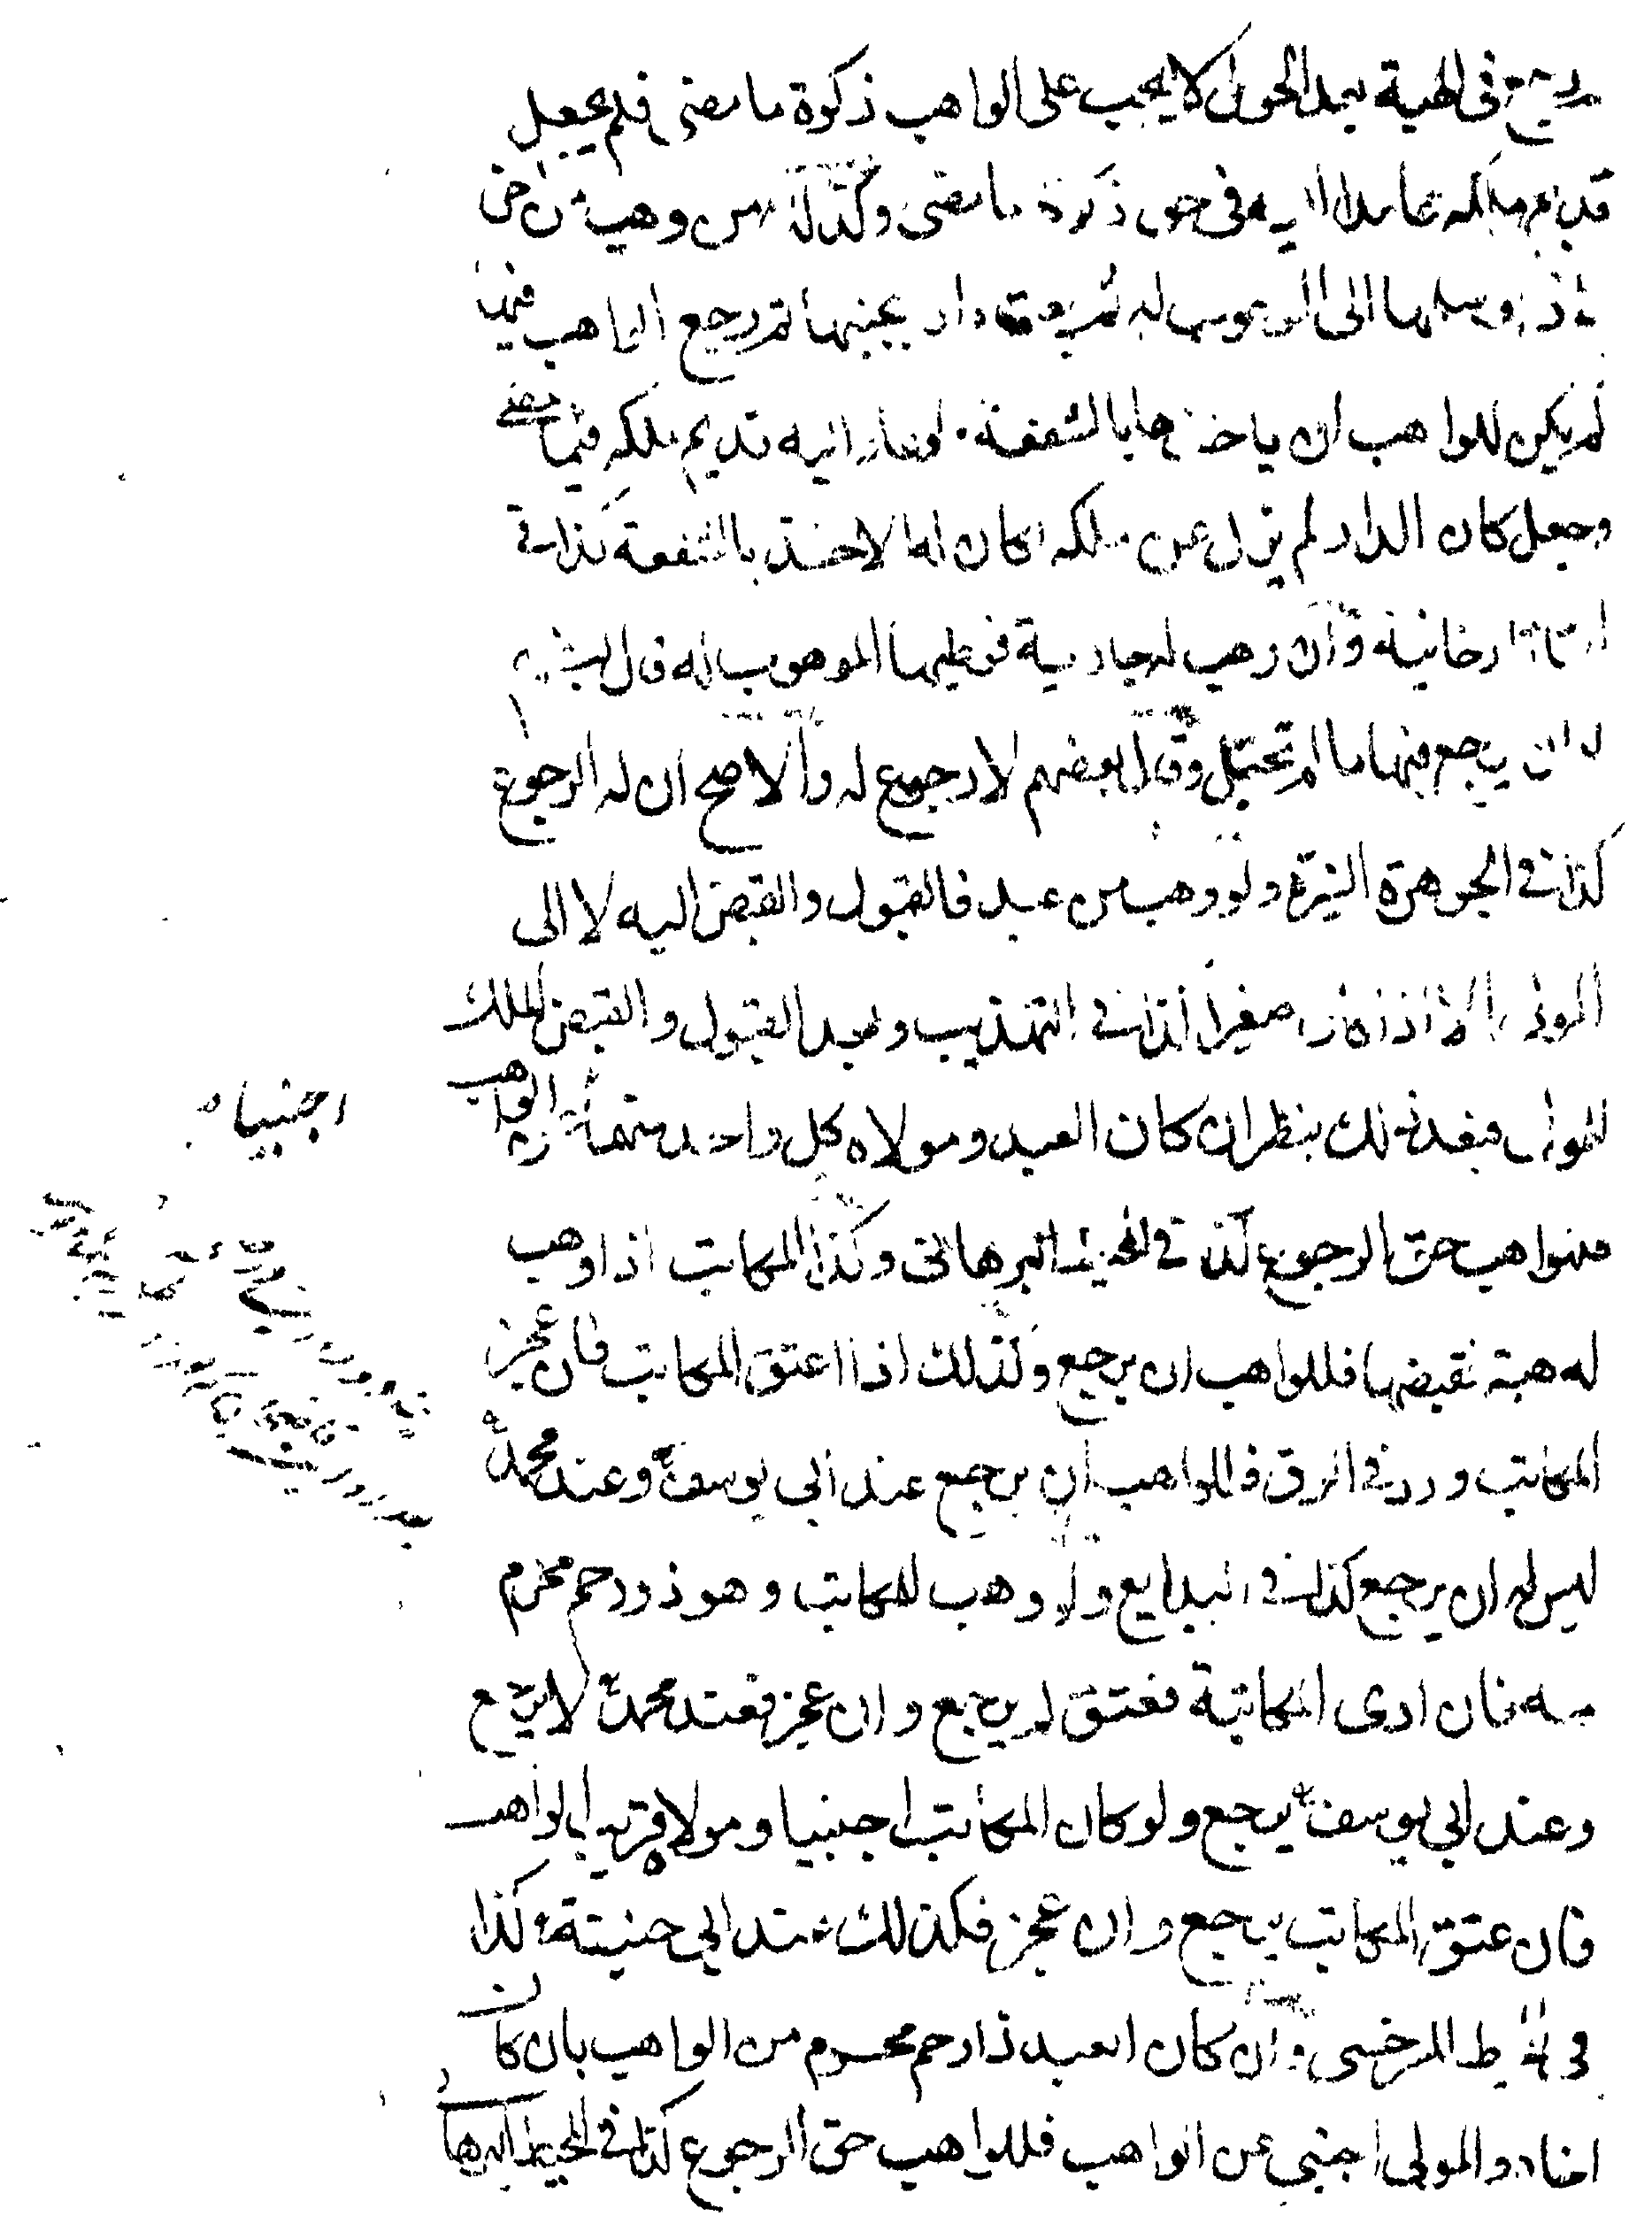 رجع في الهبة بعد الحول لا يجب على الواهب زكوة ما مضى فلم يجعل
قديم ملكه عائدا اليه في حق زكوة ما مضى وكذلك من وهب من اخر
دارا وسلمها الى الموهوب له ثم بيعت دار بجنبها ثم رجع الواهب فيها
لم يكن للواهب ان ياخذها بالشفعة ولو عاد اليه قديم ملكه فيما مضى
وجعل كان الدار لم يزل عن ملكه لكان له الاخذ بالشفعة كذا في
التتارخانية وان وهب له جارية فوطيها الموهوب له قال بعضهم
له ان يرجع فيها ما لم تحبل وقال بعضهم لا رجوع له والاصح ان له الرجوع
كذا في الجوهرة النيرة ولو وهب من عبد فالقبول والقبض اليه لا الى
المولى الا اذا كان صغيرا كذا في التهذيب وبعد القبول والقبض الملك
للمولى فبعد ذلك ينظر ان كان العبد ومولاه كل واحد منهما من الواهب
اجنبيا
فللواهب حق الرجوع كذا في المحيط البرهاني وكذا المكاتب اذا وهب
له هبة فقبضها فللواهب ان يرجع وكذلك اذا اعتق المكاتب فان عجز
المكاتب ورد في الرق فللواهب ان يرجع عند ابي يوسف وعند محمد
ليس له ان يرجع كذا في البدايع ولو وهب للمكاتب وهو ذو رحم محرم
منه فان ادى المكاتبة فعتق لم يرجع وان عجز فعند محمد لا يرجع
وعند ابي يوسف يرجع ولو كان المكاتب اجنبيا ومولاه قريب الواهب
فان عتق المكاتب يرجع وان عجز فكذلك عند ابي حنيفة كذا
في المحيط السرخسي وان كان العبد ذا رحم محرم من الواهب بان كان
اخاه والمولى اجنبي عن الواهب فللواهب حق الرجوع كذا في المحيط البرها